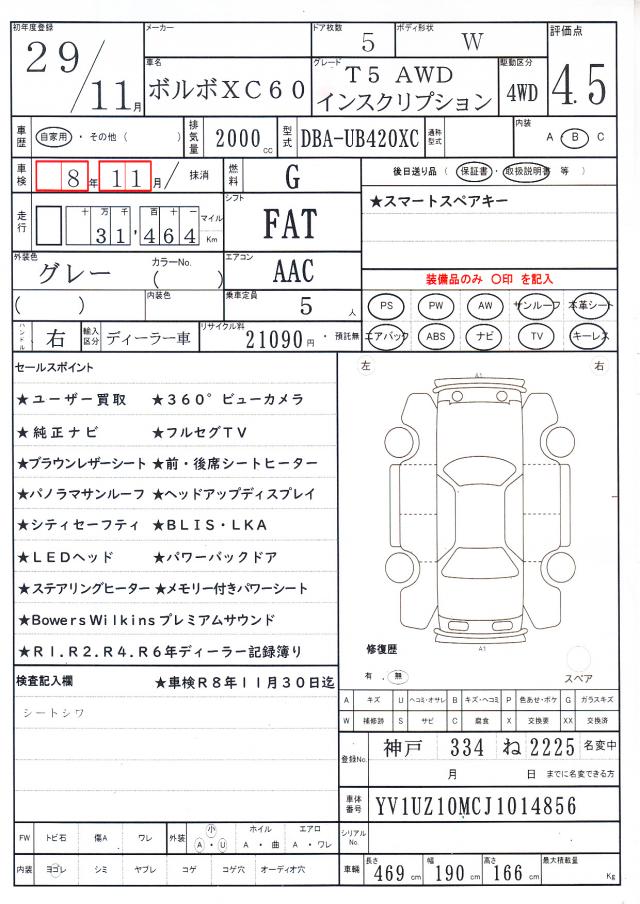 初年度登録 29/11月 メーカー ドア枚数 5 ボディ形状 W 評価点 4.5
車名 ボルボXC60 グレード T5 AWD インスクリプション 駆動区分 4WD
車歴 自家用・その他( ) 排気量 2000cc 型式 DBA-UB420XC 通称型式 内装 A・B C
車検 8年11月/ 抹消 燃料 G 後日送り品(保証書・取扱説明書 等)
走行 十万千百十一 31,464 マイル Km シフト FAT ★スマートスペアキー
外装色 グレー カラーNo.( ) エアコン AAC 装備品のみ 〇印 を記入
( ) 内装色 乗車定員 5人 PS PW AW サンルーフ 本革シート
ハンドル 右 輸入区分 ディーラー車 リサイクル料 21090円・預託無 エアバック ABS ナビ TV キーレス
セールスポイント 左 右
★ユーザー買取 ★360°ビューカメラ A1
★純正ナビ ★フルセグTV
★ブラウンレザーシート ★前・後席シートヒーター
★パノラマサンルーフ ★ヘッドアップディスプレイ
★シティセーフティ ★BLIS・LKA
★LEDヘッド ★パワーバックドア
★ステアリングヒーター ★メモリー付きパワーシート
★Bowers Wilkinsプレミアムサウンド
★R1.R2.R4.R6年ディーラー記録簿り
修復歴 A1
有 . 無 スペア
検査記入欄 ★車検R8年11月30日迄
シートシワ
A キズ U ヘコミ・オサレ B キズ・ヘコミ P 色あせ・ボケ G ガラスキズ
W 補修跡 S サビ C 腐食 X 交換要 XX 交換済
登録No. 神戸 334 ね 2225 名変中
月 日 までに名変できる方
車体番号 YV1UZ10MCJ1014856
シリアルNo.
FW トビ石 傷A ワレ 外装 小 A・U ホイル A・曲 エアロ A・ワレ
内装 ヨゴレ シミ ヤブレ コゲ コゲ穴 オーディオ穴
車輌 長さ 469cm 幅 190cm 高さ 166cm 最大積載量 Kg